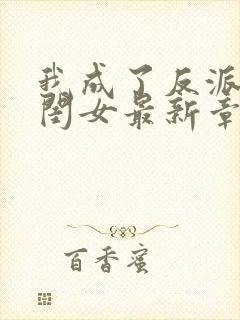 我成了反派
闺女最新章
百香蜜